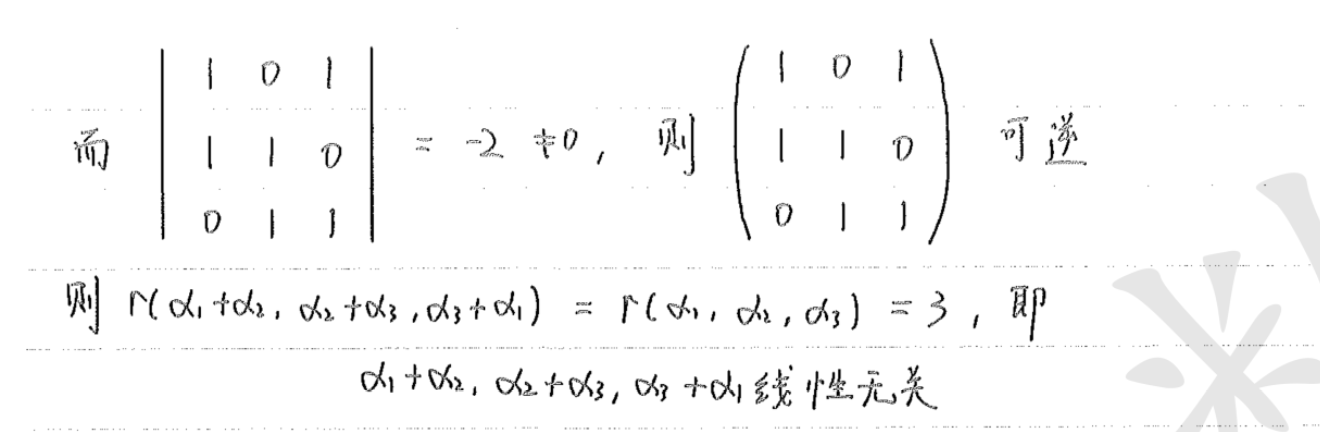 而 | 1 0 1 | = -2 ≠ 0, 则 ( 1 0 1 ) 可逆
| 1 1 0 | ( 1 1 0 )
| 0 1 1 | ( 0 1 1 )
则 r(α₁+α₂, α₂+α₃, α₃+α₁) = r(α₁, α₂, α₃) = 3, 即
α₁+α₂, α₂+α₃, α₃+α₁ 线性无关